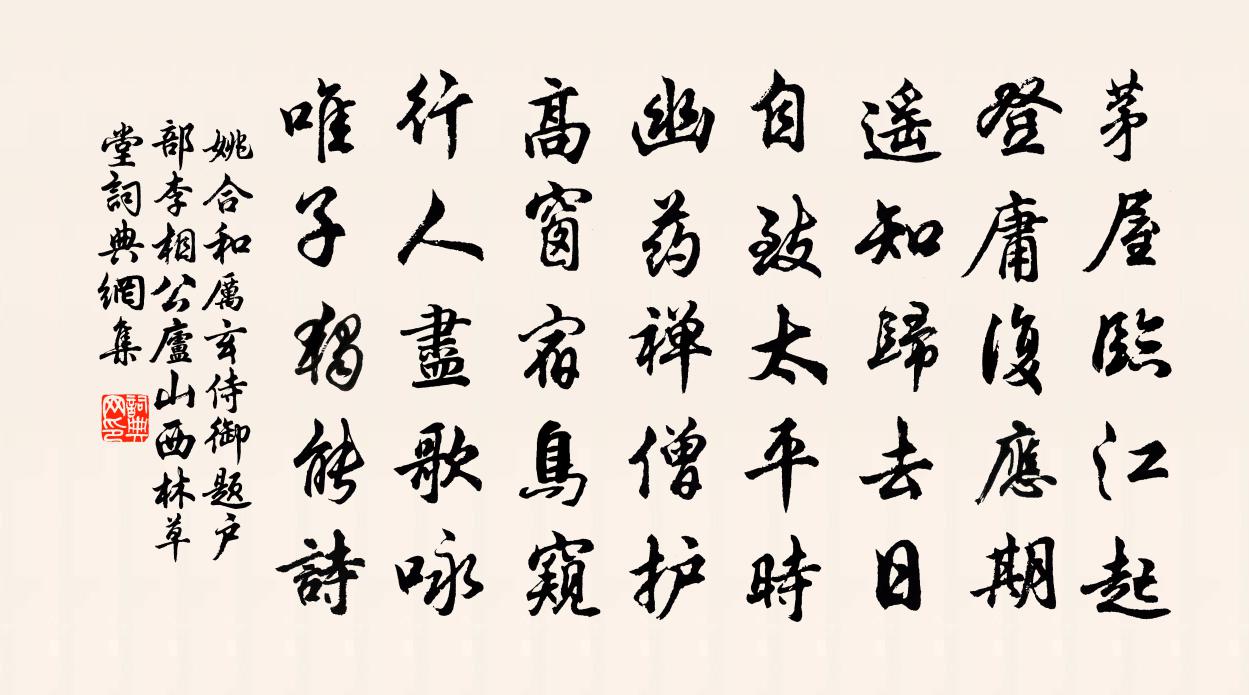 茅屋臨江起
登庸復應期
遥知歸去日
自致太平時
幽药禅僧护
高窗宿鳥窺
行人盡歌咏
唯子獨能詩
姚合和厲玄侍御题户
部李相公廬山西林草
堂詞典網集
詞典网印